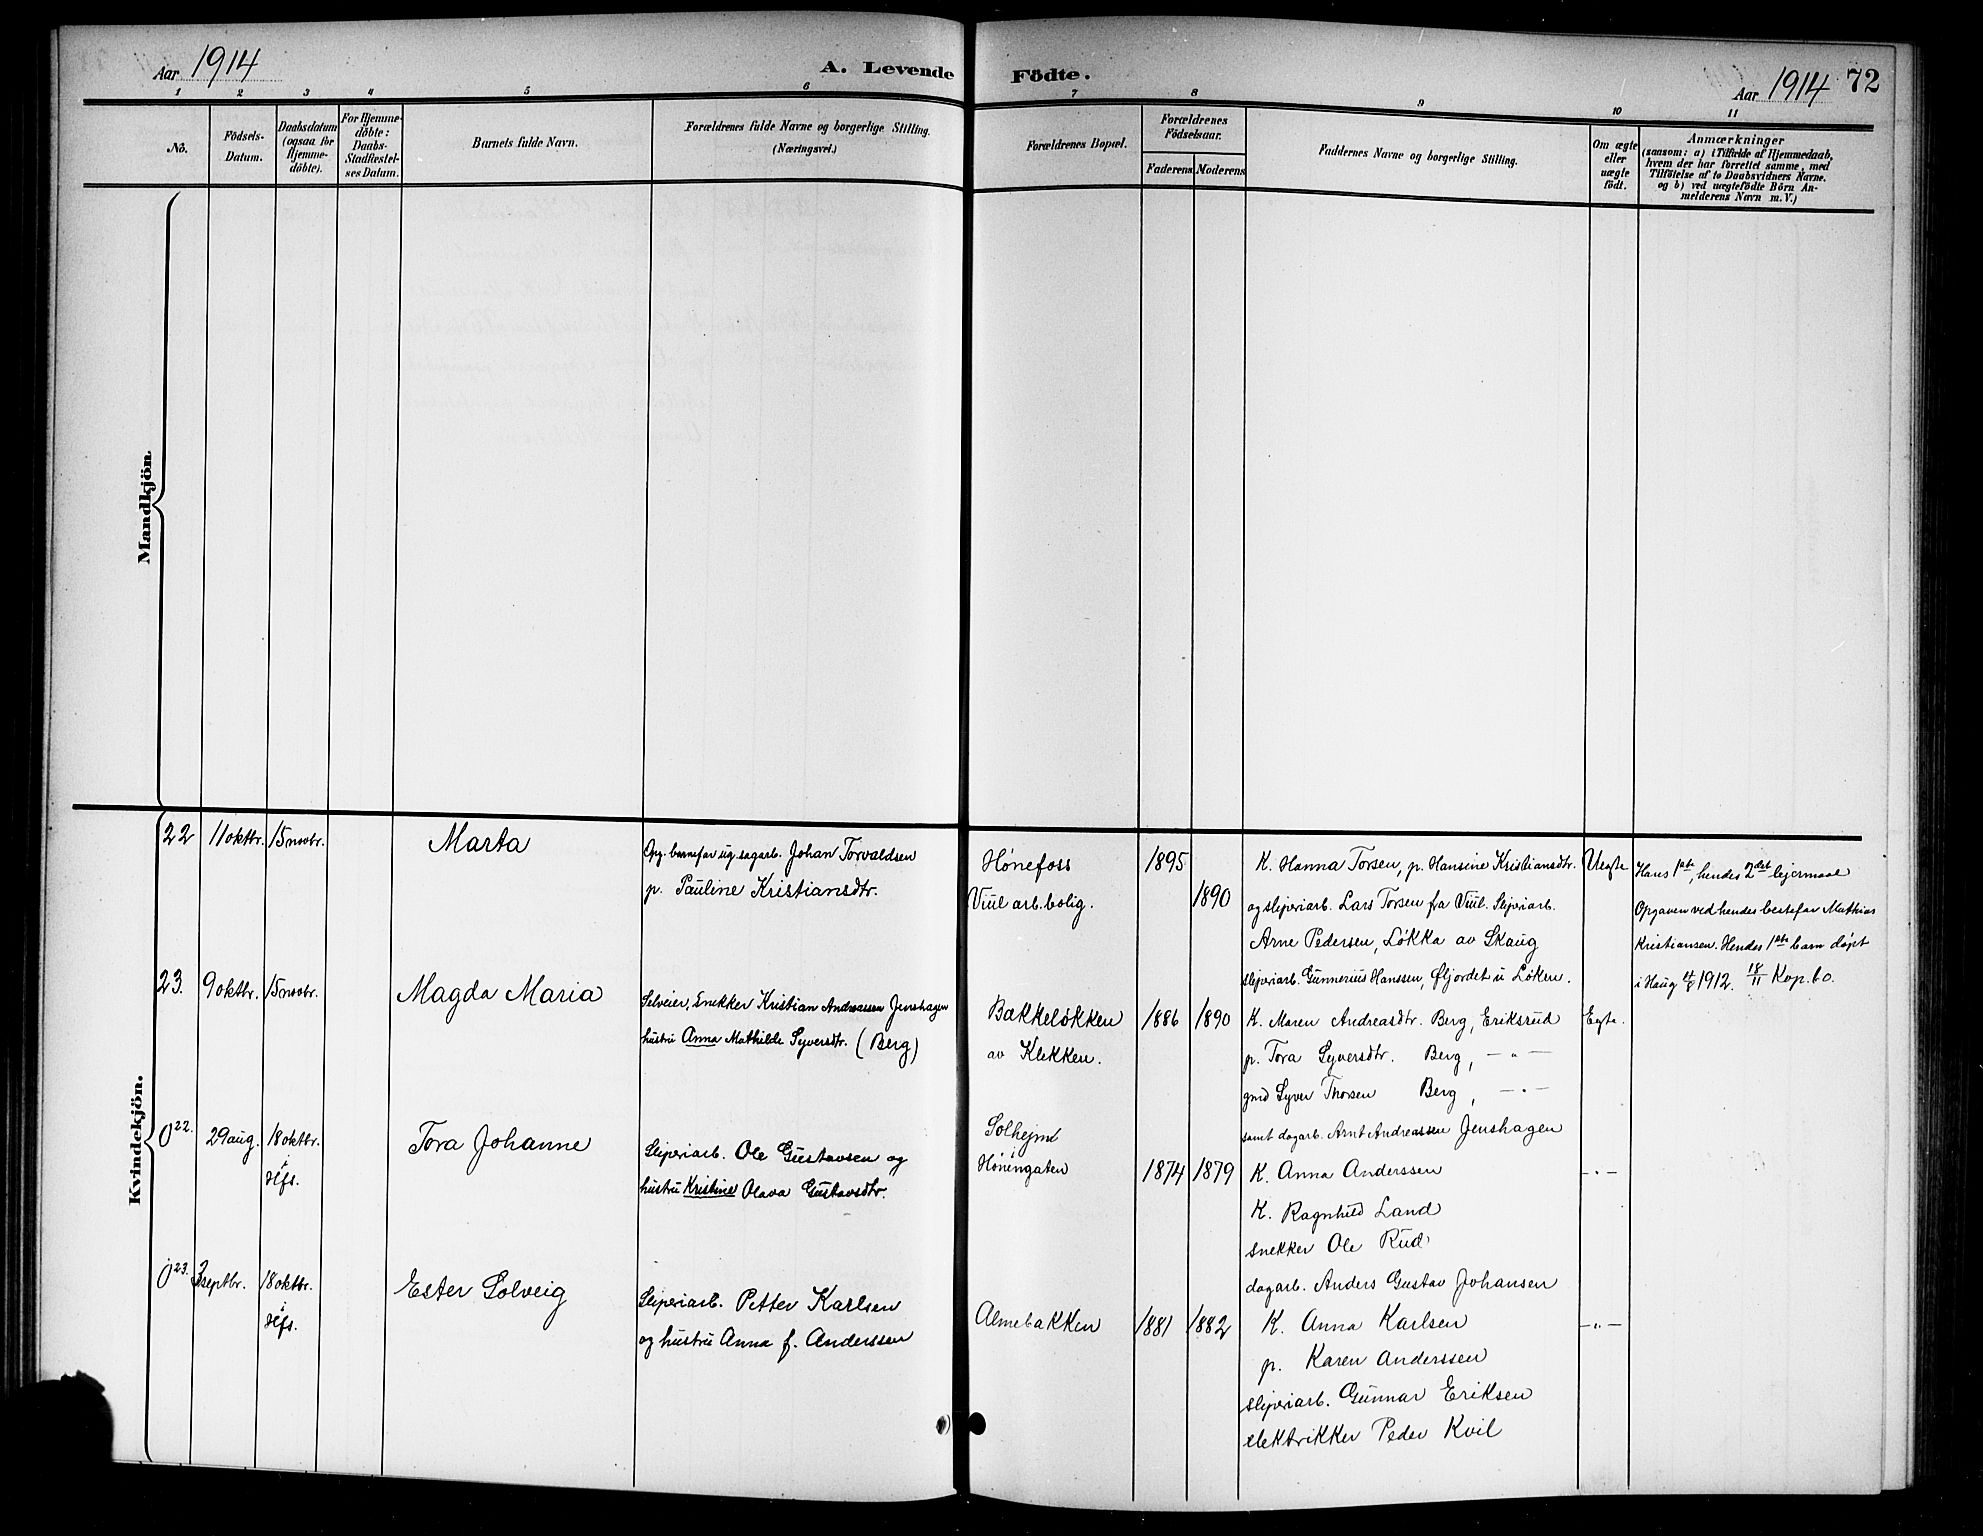 Aar 1914
A. Levende Födte.
Aar 1914 72
1 2 3 4 5 6 7 8 9 10 11
No.
Födsels-Datum.
Daabsdatum (ogsaa for Hjemme-döbte).
For Hjemme-döbte: Daabs-Stadfæstel-ses Datum.
Barnets fulde Navn.
Forældrenes fulde Navne og borgerlige Stilling.
(Næringsvei.)
Forældrenes Bopæl.
Forældrenes Födselsaar.
Faderens Moderens
Faddernes Navne og borgerlige Stilling.
Om ægte eller uægte födt.
Anmærkninger
(saasom: a) i Tilfælde af Hjemmedaab,
hvem der har forrettet samme, med
Tilföielse af to Daabsvidners Navne.
og b) ved uægtefödte Börn An-
melderens Navn m. V.)
Mandkjön.
Kvindekjön.
22 11 oktbr. 15 novbr. Marta
Opg. barnefar ug. sagarb. Johan Torvaldsen
p. Pauline Kristiansdtr.
Hønefoss
Viul arb.bolig.
1895
1890
K. Hanna Torsen, p. Hansine Kristiansdtr.
og sliperiarb. Lars Torsen fra Viul. Sliperiarb.
Arne Pedersen, Løkka av Skaug
sliperiarb. Gunnerius Hanssen, Øfjordet u Løken.
Uegte
Hans 1ste, hendes 2det lejermaal
Opgaven ved hendes bestefar Mathias
Kristiansen. Hendes 1ste barn døpt
i Haug 4/8 1912. 18/11 Kop. b.o.
23. 9 oktbr. 15 novbr. Magda Maria
Selveier, snekker Kristian Andreassen Jenshagen
hustru Anna Mathilde Syversdtr. (Berg)
Bakkeløkken
av Klekken.
1886 1890
K. Maren Andreasdtr. Berg, Eriksrud
p. Tora Syversdtr. Berg, — " —
gmd Syver Thorsen Berg, — " —
samt dagarb. Arnt Andreassen Jenshagen
Egte.
0 22. 29 aug. 18 oktbr. i Hfs. Tora Johanne
Sliperiarb. Ole Gustavsen og
hustru Kristine Olava Gustavsdtr.
Solhejm
Hønengaten
1874 1879
K. Anna Anderssen
K. Ragnhild Land
snekker Ole Rud
dagarb. Anders Gustav Johansen
— " —
0 23. 3 septbr. 18 oktbr. i Hfs. Ester Solveig
Sliperiarb. Petter Karlsen
og hustru Anna f. Anderssen
Almebakken
1881 1882
K. Anna Karlsen
p. Karen Anderssen
sliperiarb. Gunnar Eriksen
elektrikker Peder Kvil
— " —